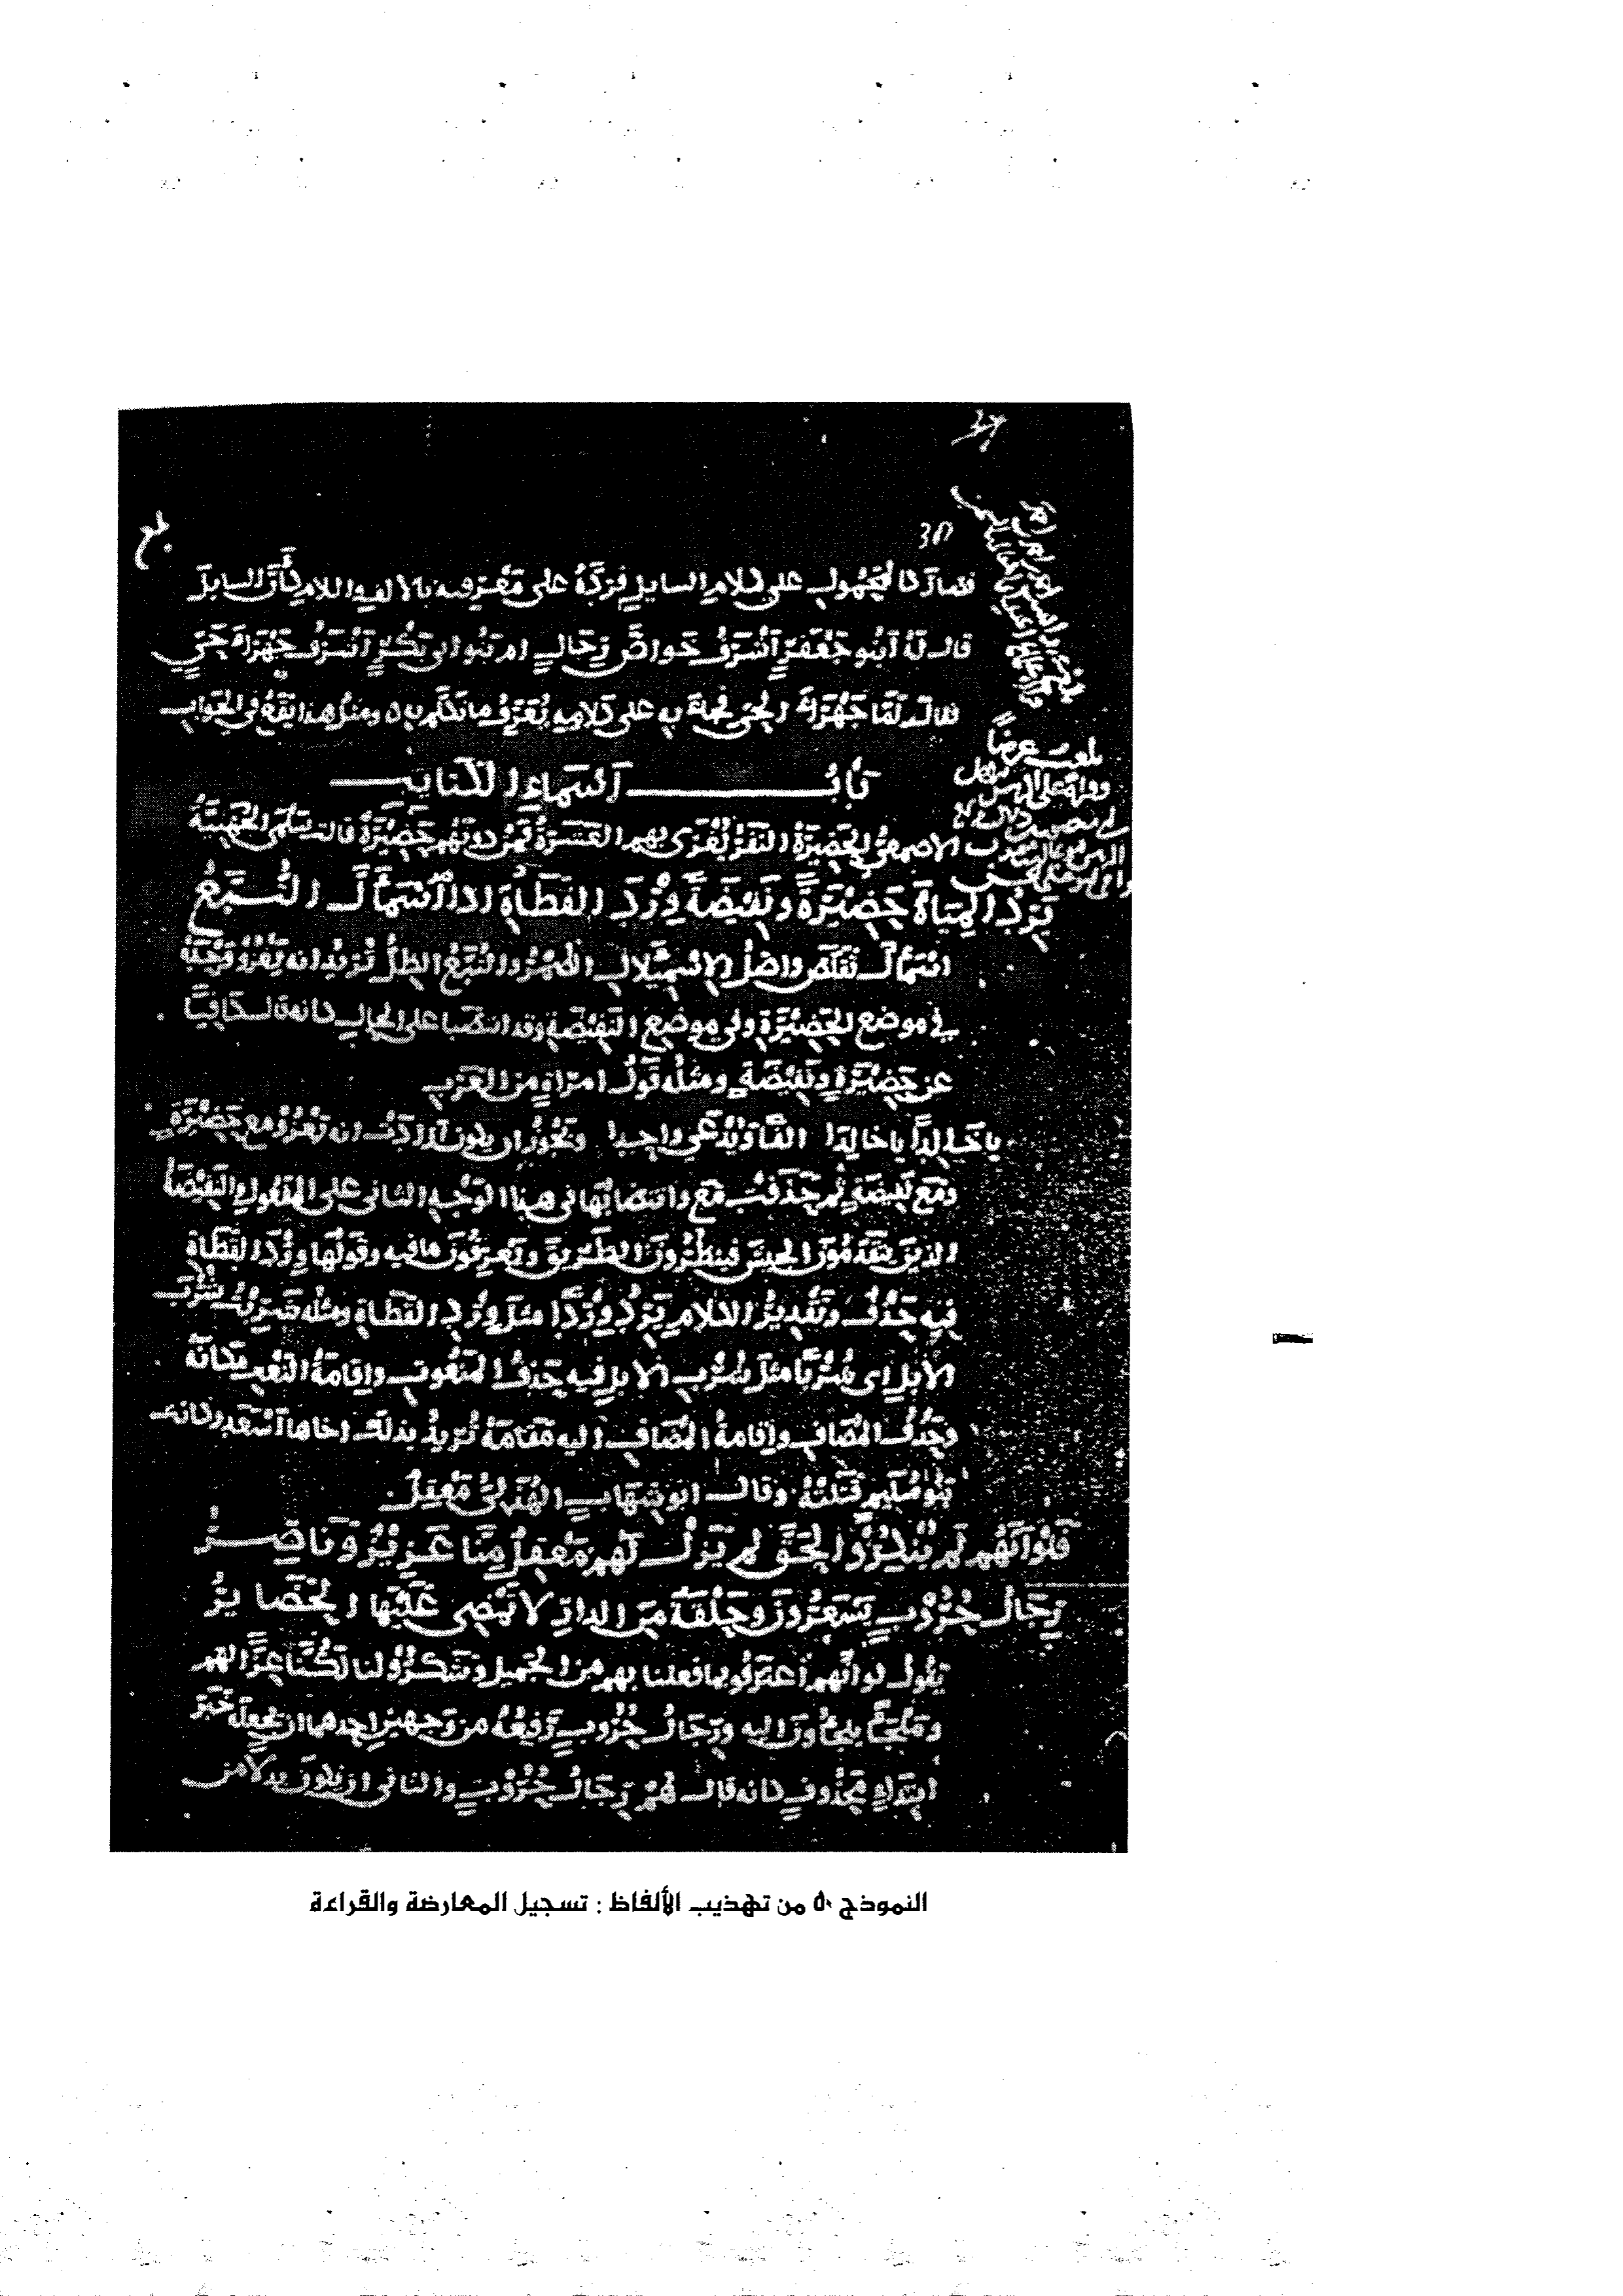 فصار كالمجهول على كلام السايل فرده على معترفيه بالالف واللام كأن السايل
قال له ابو جعفر اشرف خواض رجال ام بنو ابي بكر اشرف جهراء حي
فقال لقا جهراء الحي فجاء به على كلامه يعرف ما تكلم به ومثل هذا يقع في الجواب
باب اسماء الكتايب
الاصمعي الحضيرة النفر يغزى بهم العشرة فمن دونهم حضيرة قالت سلمى الجهنية
يرد المياه حضيرة ونفيضة ورد القطاة اذا اسمأل التبع
اسمأل تقلص واصل الاسميلال الضمر والتبع الظل تريد انه يغزو وحده
في موضع الحضيرة وفي موضع النفيضة وقد انتصبا على الحال كانه قال كافيا
عن حضيرة ونفيضة ومثله قول امراة من العرب
يا خالدا يا خالدا الفا ويدعى واحدا ويجوز ان يكون ارادت انه يغزو مع حضيرة
ومع نفيضة ثم حذفت مع وانتصابهما في هذا الوجه الثاني على المفعول والنفيضة
الذين يتقدمون الجيش فينظرون الطريق ويعرفون ما فيه وقولها ورد القطاة
فيه حذف وتقدير الكلام يرد وردا مثل ورد القطاة ومثله ضربت شرب
الابل اي شربا مثل شرب الابل فيه حذف المنعوت واقامة النعت مكانه
وحذف المضاف واقامة المضاف اليه مقامه تريد بذلك اخاها اسعد وكانت
بنو سليم قتلته وقال ابو شهاب الهذلي معقل
فلو انهم لم ينكروا الحق لم يزل لهم معقل منا عزيز وناصر
رجال حروب يسعرون وحلقة من الدار لا تمضي عليها الحضاير
يقول لو انهم اعترفوا بما فعلنا بهم من الجميل وشكروا لنا لكنا عزا لهم
وملجأ يلجؤون اليه ورجال حروب ترفعه من وجهين احدهما ان تجعله خبر
ابتداء محذوف كانه قال هم رجال حروب والثاني ان يكون بدلا من
النموذج ٥٠ من تهذيب الألفاظ : تسجيل المعارضة والقراءة